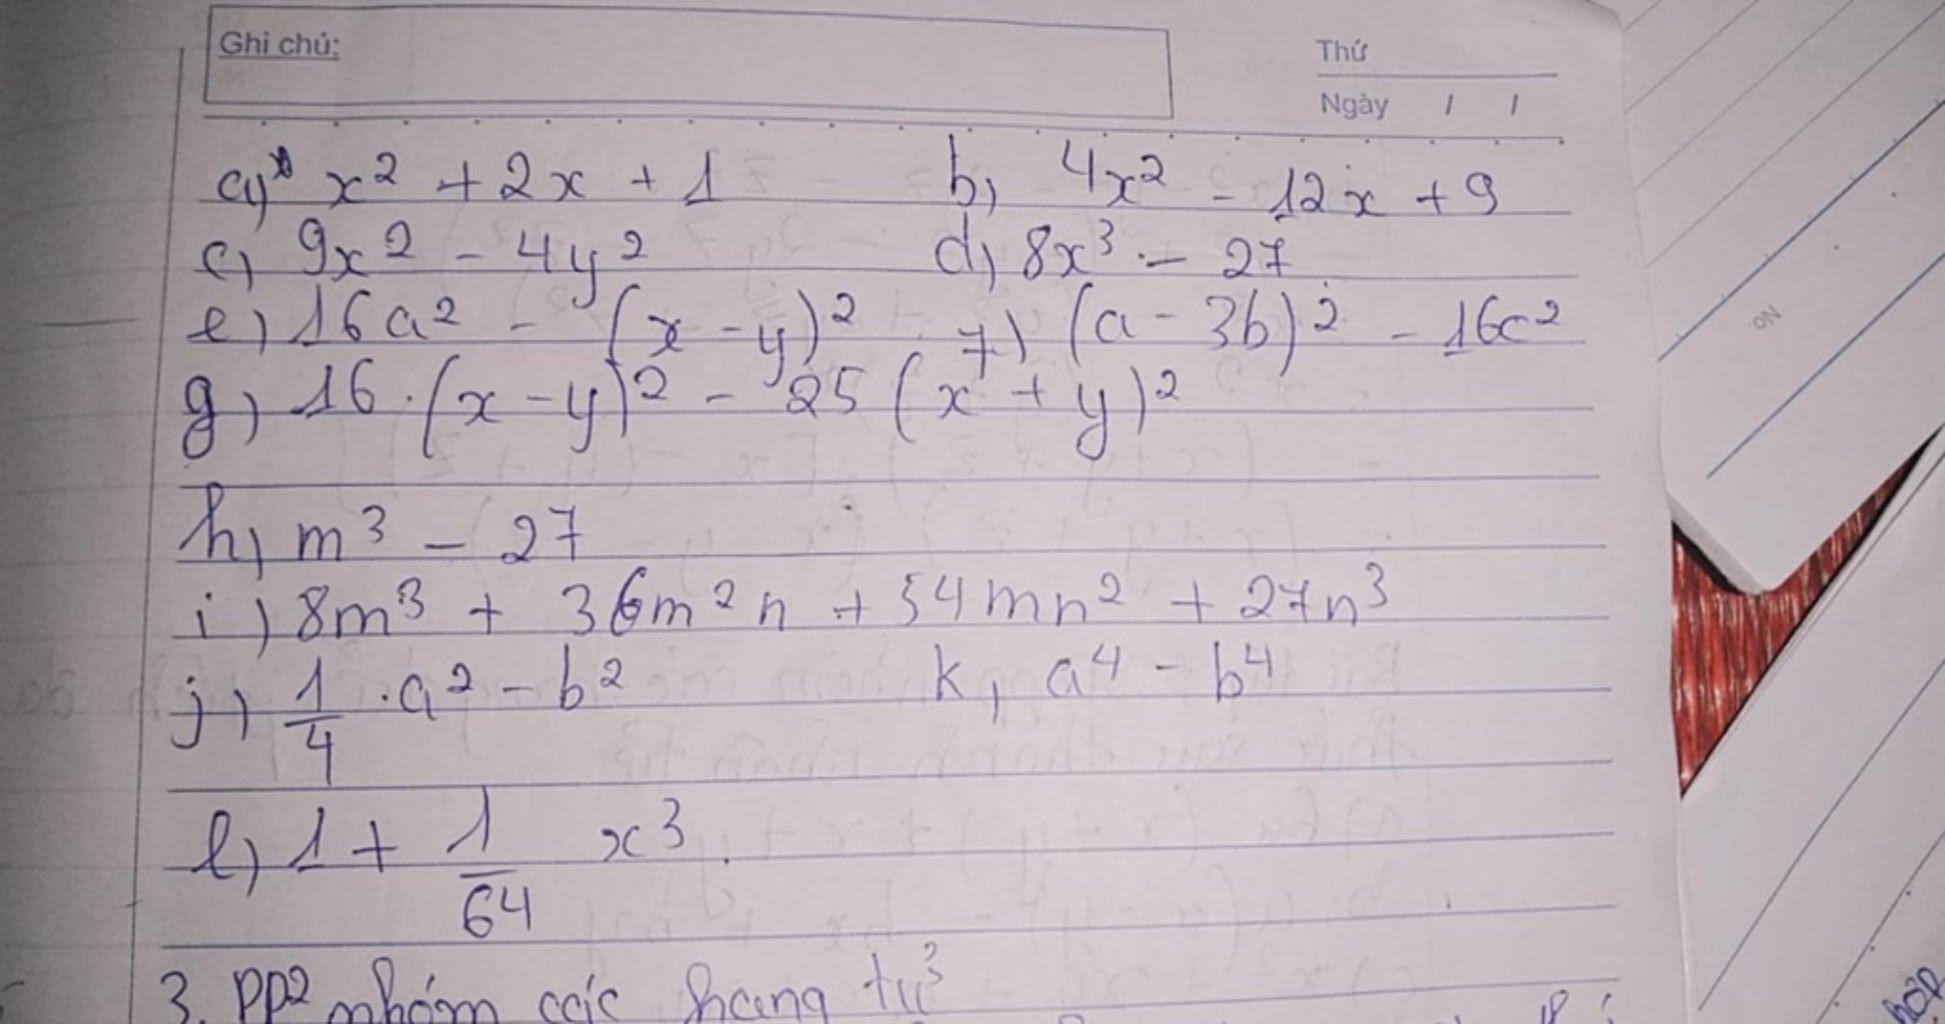 Ghi chú:
Thứ
Ngày / /
a) x² + 2x + 1 b) 4x² - 12x + 9
c) 9x² - 4y² d) 8x³ - 27
e) 16a² - (x - y)² f) (a - 3b)² - 16c²
g) 16.(x - y)² - 25(x + y)²
h) m³ - 27
i) 8m³ + 36m²n + 54mn² + 27n³
j) 1/4 .a² - b² k, a⁴ - b⁴
l) 1 + 1/64 x³.
3. PP² nhóm các hạng tử
No
hợp